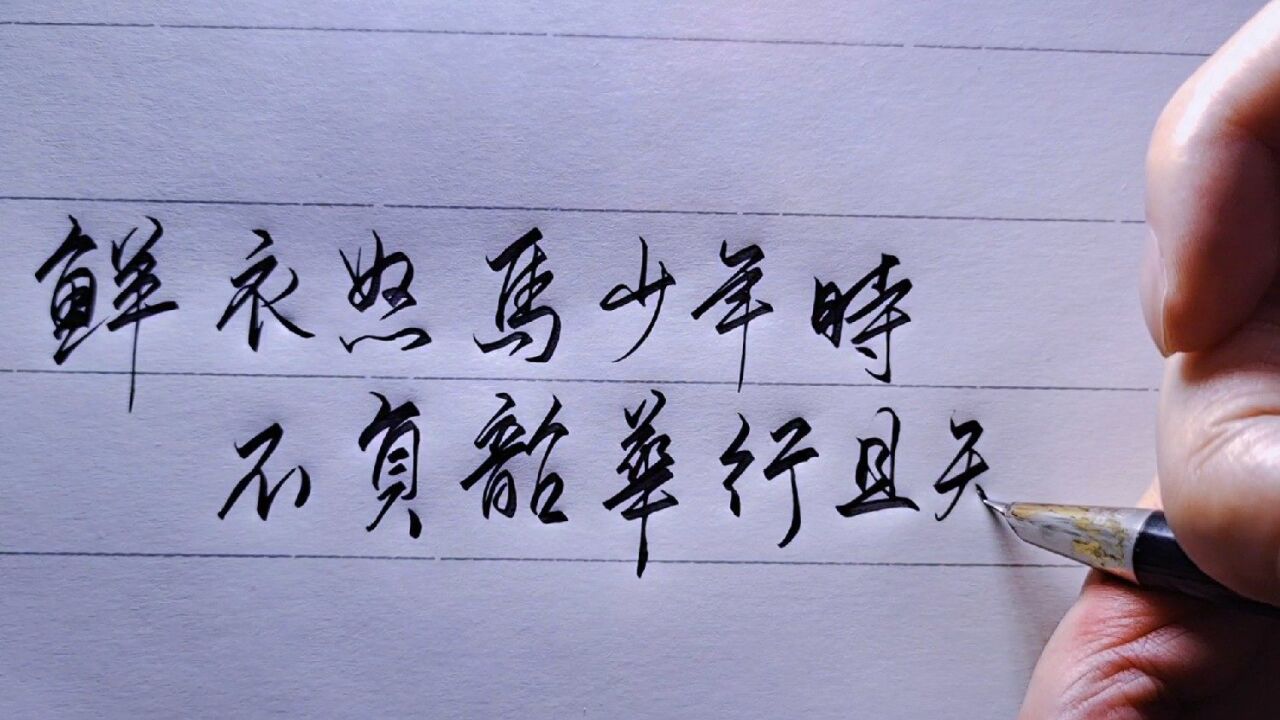 鮮衣怒馬少年時
不負韶華行且